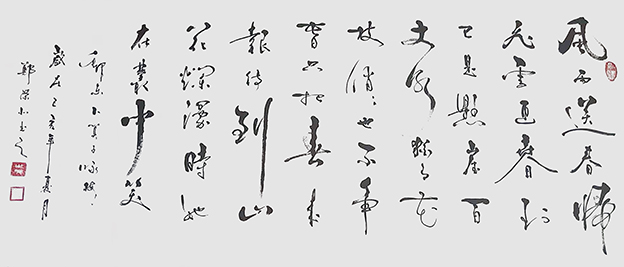 風雨送春歸
飛雪迎春到
已是懸崖百
丈冰猶有花
枝俏〻也不爭
春只把春來
報待到山
花爛漫時她
在叢中笑
卜算子咏梅
歲在己亥年夏月